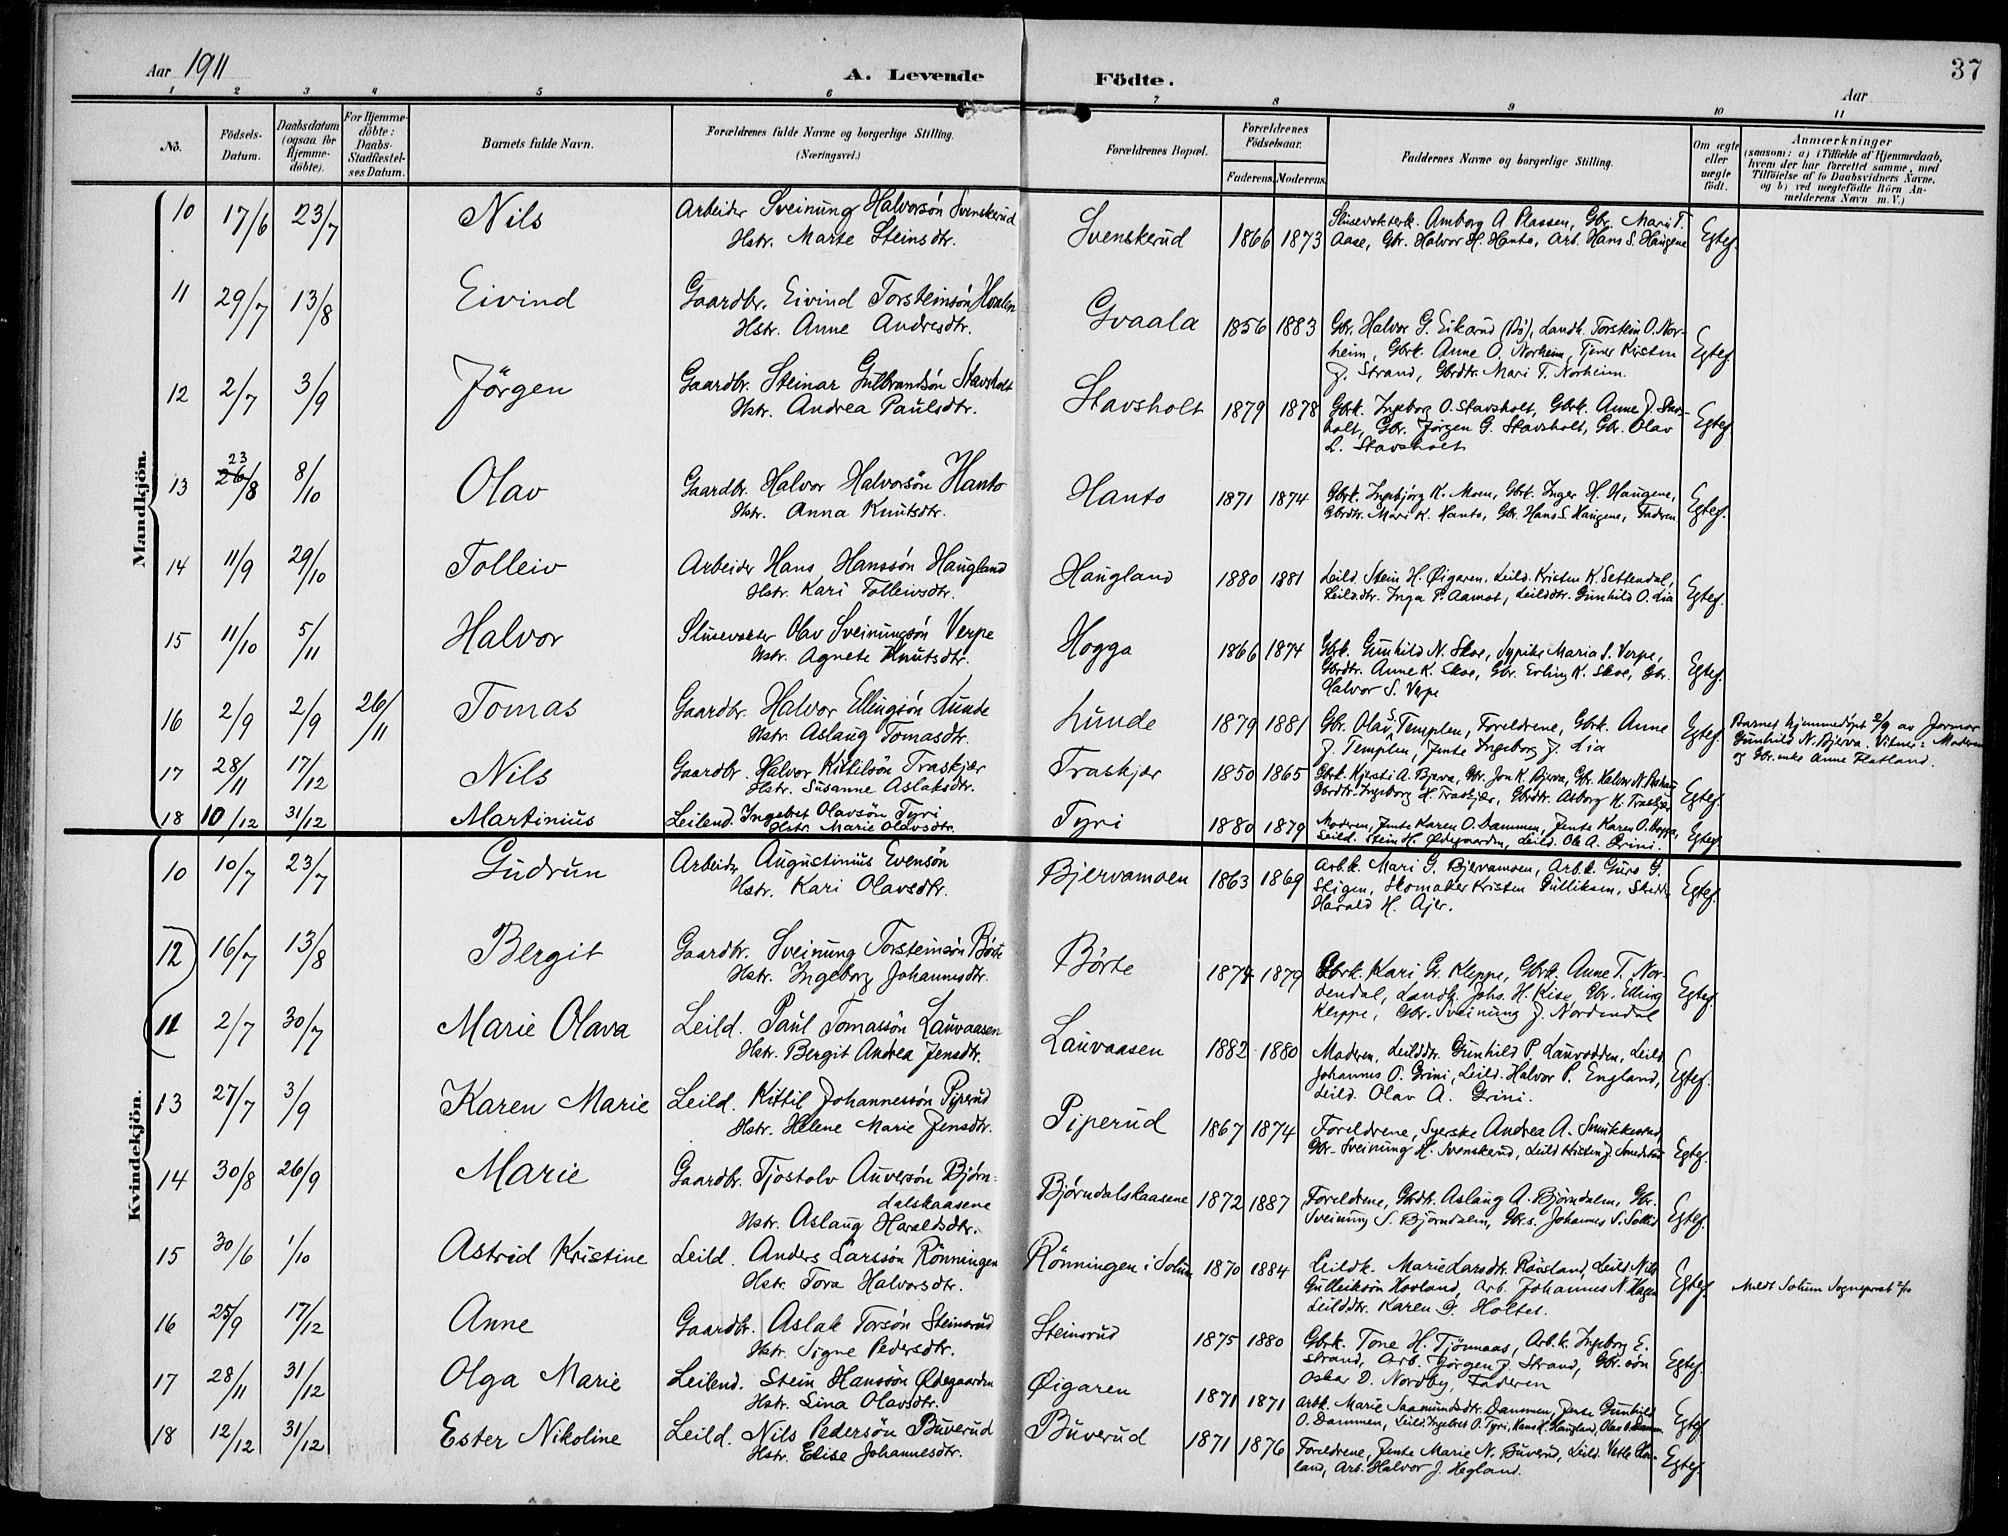 Aar 1911
A. Levende Födte.
37
Aar
1 2 3 4 5 6 7 8 9 10 11
No.
Födsels-Datum.
Daabsdatum (ogsaa for Hjemme-döbte).
For Hjemme-döbte: Daabs-Stadfæstel-ses Datum.
Barnets fulde Navn.
Forældrenes fulde Navne og borgerlige Stilling. (Næringsvei.)
Forældrenes Bopæl.
Forældrenes Födselsaar.
Faderens. Moderens.
Faddernes Navne og borgerlige Stilling.
Om ægte eller uægte födt.
Anmærkninger
(saasom: a) i Tilfælde af Hjemmedaab, hvem der har forrettet samme, med Tilföielse af to Daabsvidners Navne, og b) ved uægtefödte Börn An-melderens Navn m.V.)
Mandkjön.
10 17/6 23/7 Nils Arbeider Sveinung Halvorsön Svenskerud
Hstr. Marte Steinsdtr.
Svenskerud 1866 1873 Slusevokterk. Amborg A Plassen, Gbr. Mari T.
Aase, Gbr. Halvor H. Hanto, Arb. Hans S. Haugene Egtef.
11 29/7 13/8 Eivind Gaardbr. Eivind Torsteinsön
Hstr. Anne Andresdtr.
Gvaala 1856 1883 Gbr. Halvor G. Eikarud (Bö), Landh. Torstein O. Nor-
heim, Gbrk. Anne O. Norheim, Tjener Kirsten
J. Strand, Gbrdtr. Mari T. Norheim. Egtef.
12 2/7 3/9 Jörgen Gaardbr. Steinar Gulbrandsön Stavsholt
Hstr. Andrea Paulsdtr.
Stavsholt 1879 1878 Gbrk. Ingeborg O. Stavsholt, Gbrk. Anne J. Stavs-
holt, Gbr. Jörgen G. Stavsholt, Gbr. Olav
L. Stavsholt Egtef.
13 23 26/8 8/10 Olav Gaardbr. Halvor Halvorsön Hanto
Hstr. Anna Knutsdtr.
Hanto 1871 1874 Gbrk. Ingebjörg K. Moen, Gbrk. Inger H. Haugene,
Gbrdtr. Mari K. Hanto, Gbr. Hans S. Haugene, Faderen Egtef.
14 11/9 29/10 Tolleiv Arbeider Hans Hanssön Haugland
Hstr. Kari Tolleivsdtr.
Haugland 1880 1881 Leild. Stein H. Øigaren, Leild. Kristen K. Settendal,
Leild.dtr. Inga P. Aamot, Leilddtr. Gunhild O. Lia Egtef.
15 11/10 5/11 Halvor Slusevokter Olav Sveinungsön Verpe
Hstr. Agnete Knutsdtr.
Hogga 1866 1874 Gbrk. Gunhild N. Skoe, Sypike Maria S. Verpe,
Gbrdtr. Anne K. Skoe, Gbr. Erling K. Skoe, Gbr.
Halvor S. Verpe Egtef.
16 2/9 2/9 26/11 Tomas Gaardbr. Halvor Ellingsön Lunde
Hstr. Aslaug Tomasdtr.
Lunde 1879 1881 Gbr. Olav S. Templen, Foreldrene, Gbrk. Anne
J. Templen, Jente Ingeborg J. Lia Egtef.
Barnet hjemmedöpt 2/9 av Jormor
Gunhild N. Bjerva. Vitner: Moderen
og Gbr. enke Anne Flatland.
17 28/11 17/12 Nils Gaardbr. Halvor Kittilsön Traskjær
Hstr. Susanne Aslaksdtr.
Traskjær 1850 1865 Gbrk. Kjersti A. Bjerva, Gbr. Jon K. Bjerva, Gbr. Halvor N.
Gbrdtr. Ingeborg H. Traskjær, Gbrdtr. Asborg H. Traskjær Egtef.
18 10/12 31/12 Martinius Leilend. Ingebret Olavsön Tyri
Hstr. Marie Olavsdtr.
Tyri 1880 1879 Moderen, Jente Karen O. Dammen, Jente Karen O. Hogga,
Leild. Stein H. Ødegaarden, Leild. Ole A. Grini. Egtef.
Kvindekjön.
10 10/7 23/7 Gudrun Arbeider Augustinius Evensön
Hstr. Kari Olavsdtr.
Bjervamoen 1863 1869 Arb.k. Mari G. Bjervamoen, Arb.k. Guro G.
Stigen, Skomaker Kristen Gulliksen,
Harald H. Ajer. Egtef.
12 16/7 13/8 Bergit Gaardbr. Sveinung Torsteinsön Börte
Hstr. Ingeborg Johannesdtr.
Börte 1874 1879 Gbrk. Kari Gr. Kleppe, Gbrk. Anne T. Nor-
dendal, Landh. Johs. H. Kise, Gbr. Elling
Kleppe, Gbr. Sveinung J. Nordendal Egtef.
11 2/7 30/7 Marie Olava Leild. Paul Tomassön Lauvaasen
Hstr. Bergit Andrea Jensdtr.
Lauvaasen 1882 1880 Moderen, Leilddtr. Gunhild P. Lauvodden, Leild.
Johannes O. Grini, Leild. Halvor P. England,
Leild. Olav A. Grini. Egtef.
13 27/7 3/9 Karen Marie Leild. Kittil Johannessön Piperud
Hstr. Helene Marie Jensdtr.
Piperud 1867 1874 Foreldrene, Syerske Andrea A.
Gbr. Sveinung H. Svenskerud, Leild Kristen J. Egtef.
14 30/8 26/9 Marie Gaardbr. Tjostolv Auversön Björn-
dalskaasene
Hstr. Aslaug Haraldsdtr.
Björndalskaasene 1872 1887 Foreldrene, Gbrdtr. Aslaug A. Björndalen, Gbr.
Sveinung S. Björndalen, Gbr.s. Johannes S. Sollid Egtef.
15 30/6 1/10 Astrid Kristine Leild. Anders Larssön Rönningen
Hstr. Tora Halvorsdtr.
Rönningen i Solum 1870 1884 Leildk. Marie Larsdtr. Rausland, Leild Nils
Gulleiksön Hovland, Arb. Johannes N. Hagen
Leilddtr. Karen G. Holtet. Egtef.
Meldt Solum Sogneprest
16 25/9 17/12 Anne Gaardbr. Aslak Torsön Steinsrud
Hstr. Signe Pedersdtr.
Steinsrud 1875 1880 Gbrk. Tone H. Tjönnaas, Arb.k. Ingeborg E.
Strand, Arb. Jörgen J. Strand, Gbr. sön
Oskar D. Nordby, Faderen Egtef.
17 28/11 31/12 Olga Marie Leilend. Stein Hanssön Ødegaarden
Hstr. Lina Olavsdtr.
Øigaren 1871 1871 Arbk. Marie Saamundsdtr. Dammen, Jente Gunhild
O. Dammen, Leild. Ingebret O. Tyri, Hans H. Haugland, Olav O. Dammen Egtef.
18 12/12 31/12 Ester Nikoline Leild. Nils Pedersön Buverud
Hstr. Elise Johannesdtr.
Buverud 1871 1876 Foreldrene, Jente Marie N. Buverud, Leild. Vetle
land, Arb. Halvor J. Hegland. Egtef.